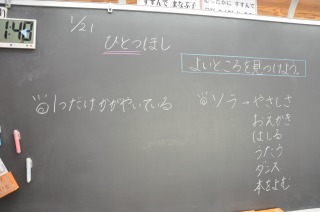 すすんで まなぶ子
すすんで
1/21
ひとつほし
よいところを見つけよう。
1つだけかがやいている
ソラ→やさしさ
おえかき
はしる
うたう
ダンス
本をよむ